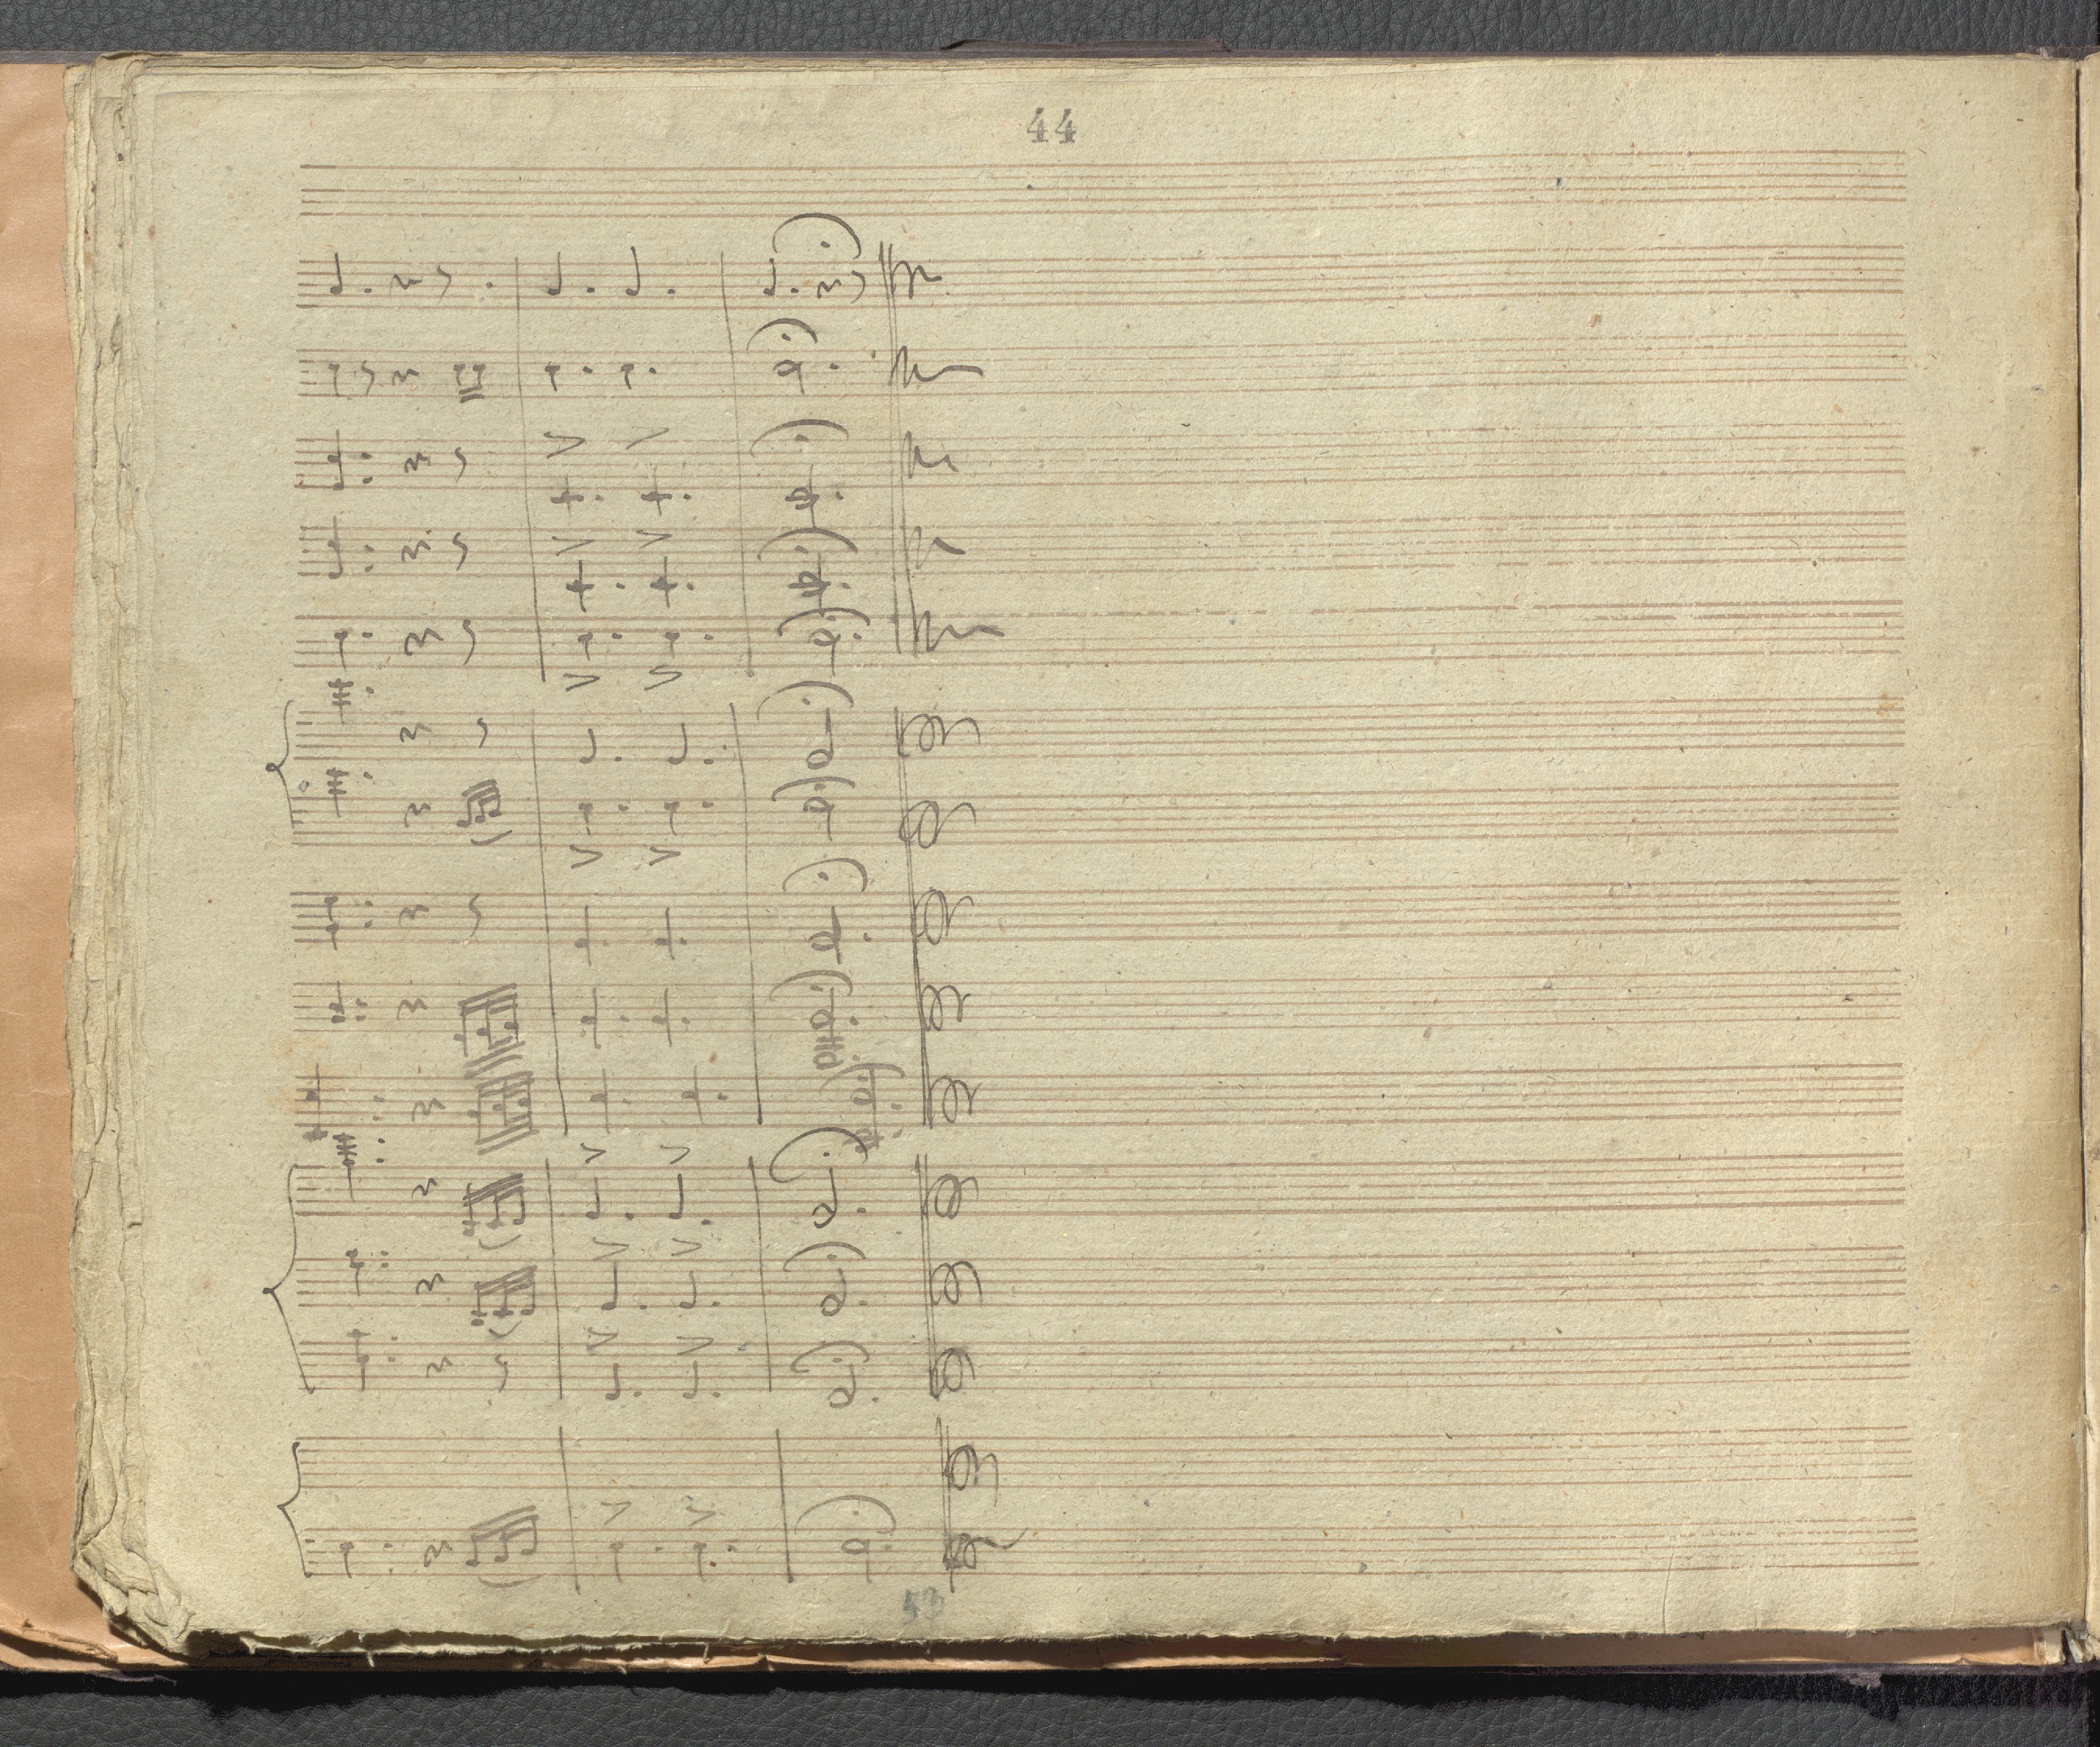 44
53